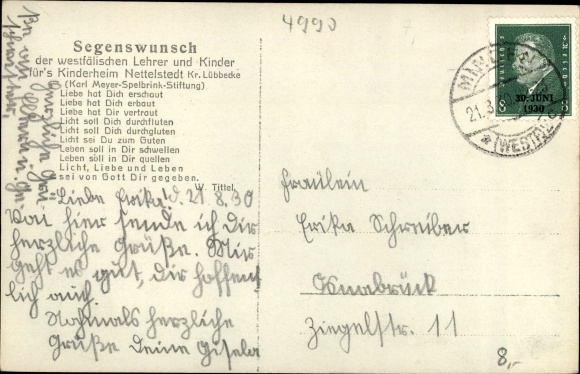 4990
Segenswunsch
der westfälischen Lehrer und Kinder
für's Kinderheim Nettelstedt Kr. Lübbecke
(Karl Meyer-Spelbrink-Stiftung)
Liebe hat Dich erschaut
Liebe hat Dich erbaut
Liebe hat Dir vertraut
Licht soll Dich durchfluten
Licht soll Dich durchgluten
Licht sei Du zum Guten
Leben soll in Dir schwellen
Leben soll in Dir quellen
Licht, Liebe und Leben
sei von Gott Dir gegeben.
W. Tittel
d. 21.8.30
Liebe Erika!
Von hier sende ich Dir
herzliche Grüße. Mir
geht es gut, Dir hoffent
lich auch.
Nochmals herzliche
Grüße Deine Gisela
30. JUNI
1930
8 8
MINDEN
21.8
(WESTF)
Fräulein
Erika Schreiber
Osnabrück
Ziegelstr. 11
8,-